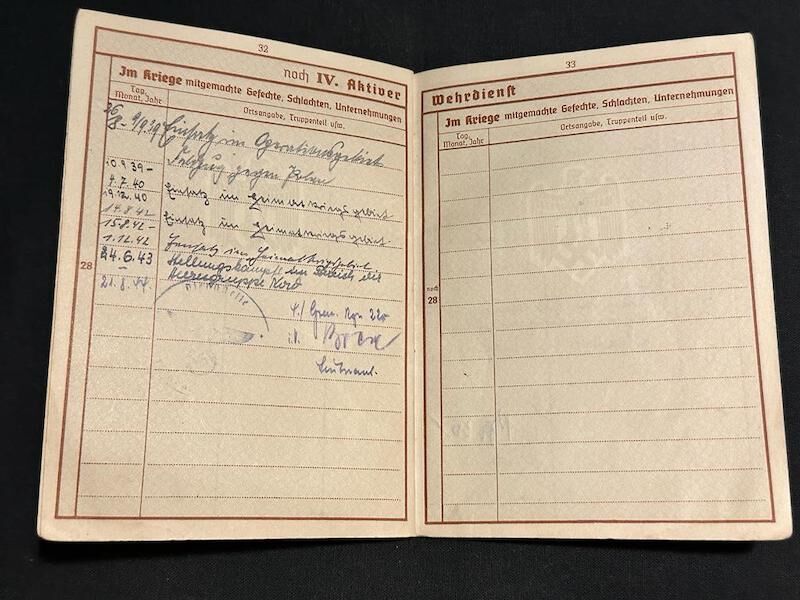 32
noch IV. Aktiver
Im Kriege mitgemachte Gefechte, Schlachten, Unternehmungen
Tag, Monat, Jahr
Ortsangabe, Truppenteil usw.
26
8- 9/9.39 Einsatz im Operationsgebiet
Feldzug gegen Polen
10.9.39-
4.7.40 Einsatz im Heimatkriegsgebiet
19.12.40
14.8.42 Einsatz im Heimatkriegsgebiet
15.8.42-
1.12.42 Einsatz im Heimatkriegsgebiet
24.6.43 Stellungskämpfe im Bereich der
- Heeresgruppe Nord
21.8.44.
28
4./ Gren. Rgt. 220
Leutnant.
33
Wehrdienst
Im Kriege mitgemachte Gefechte, Schlachten, Unternehmungen
Tag, Monat, Jahr
Ortsangabe, Truppenteil usw.
noch
28